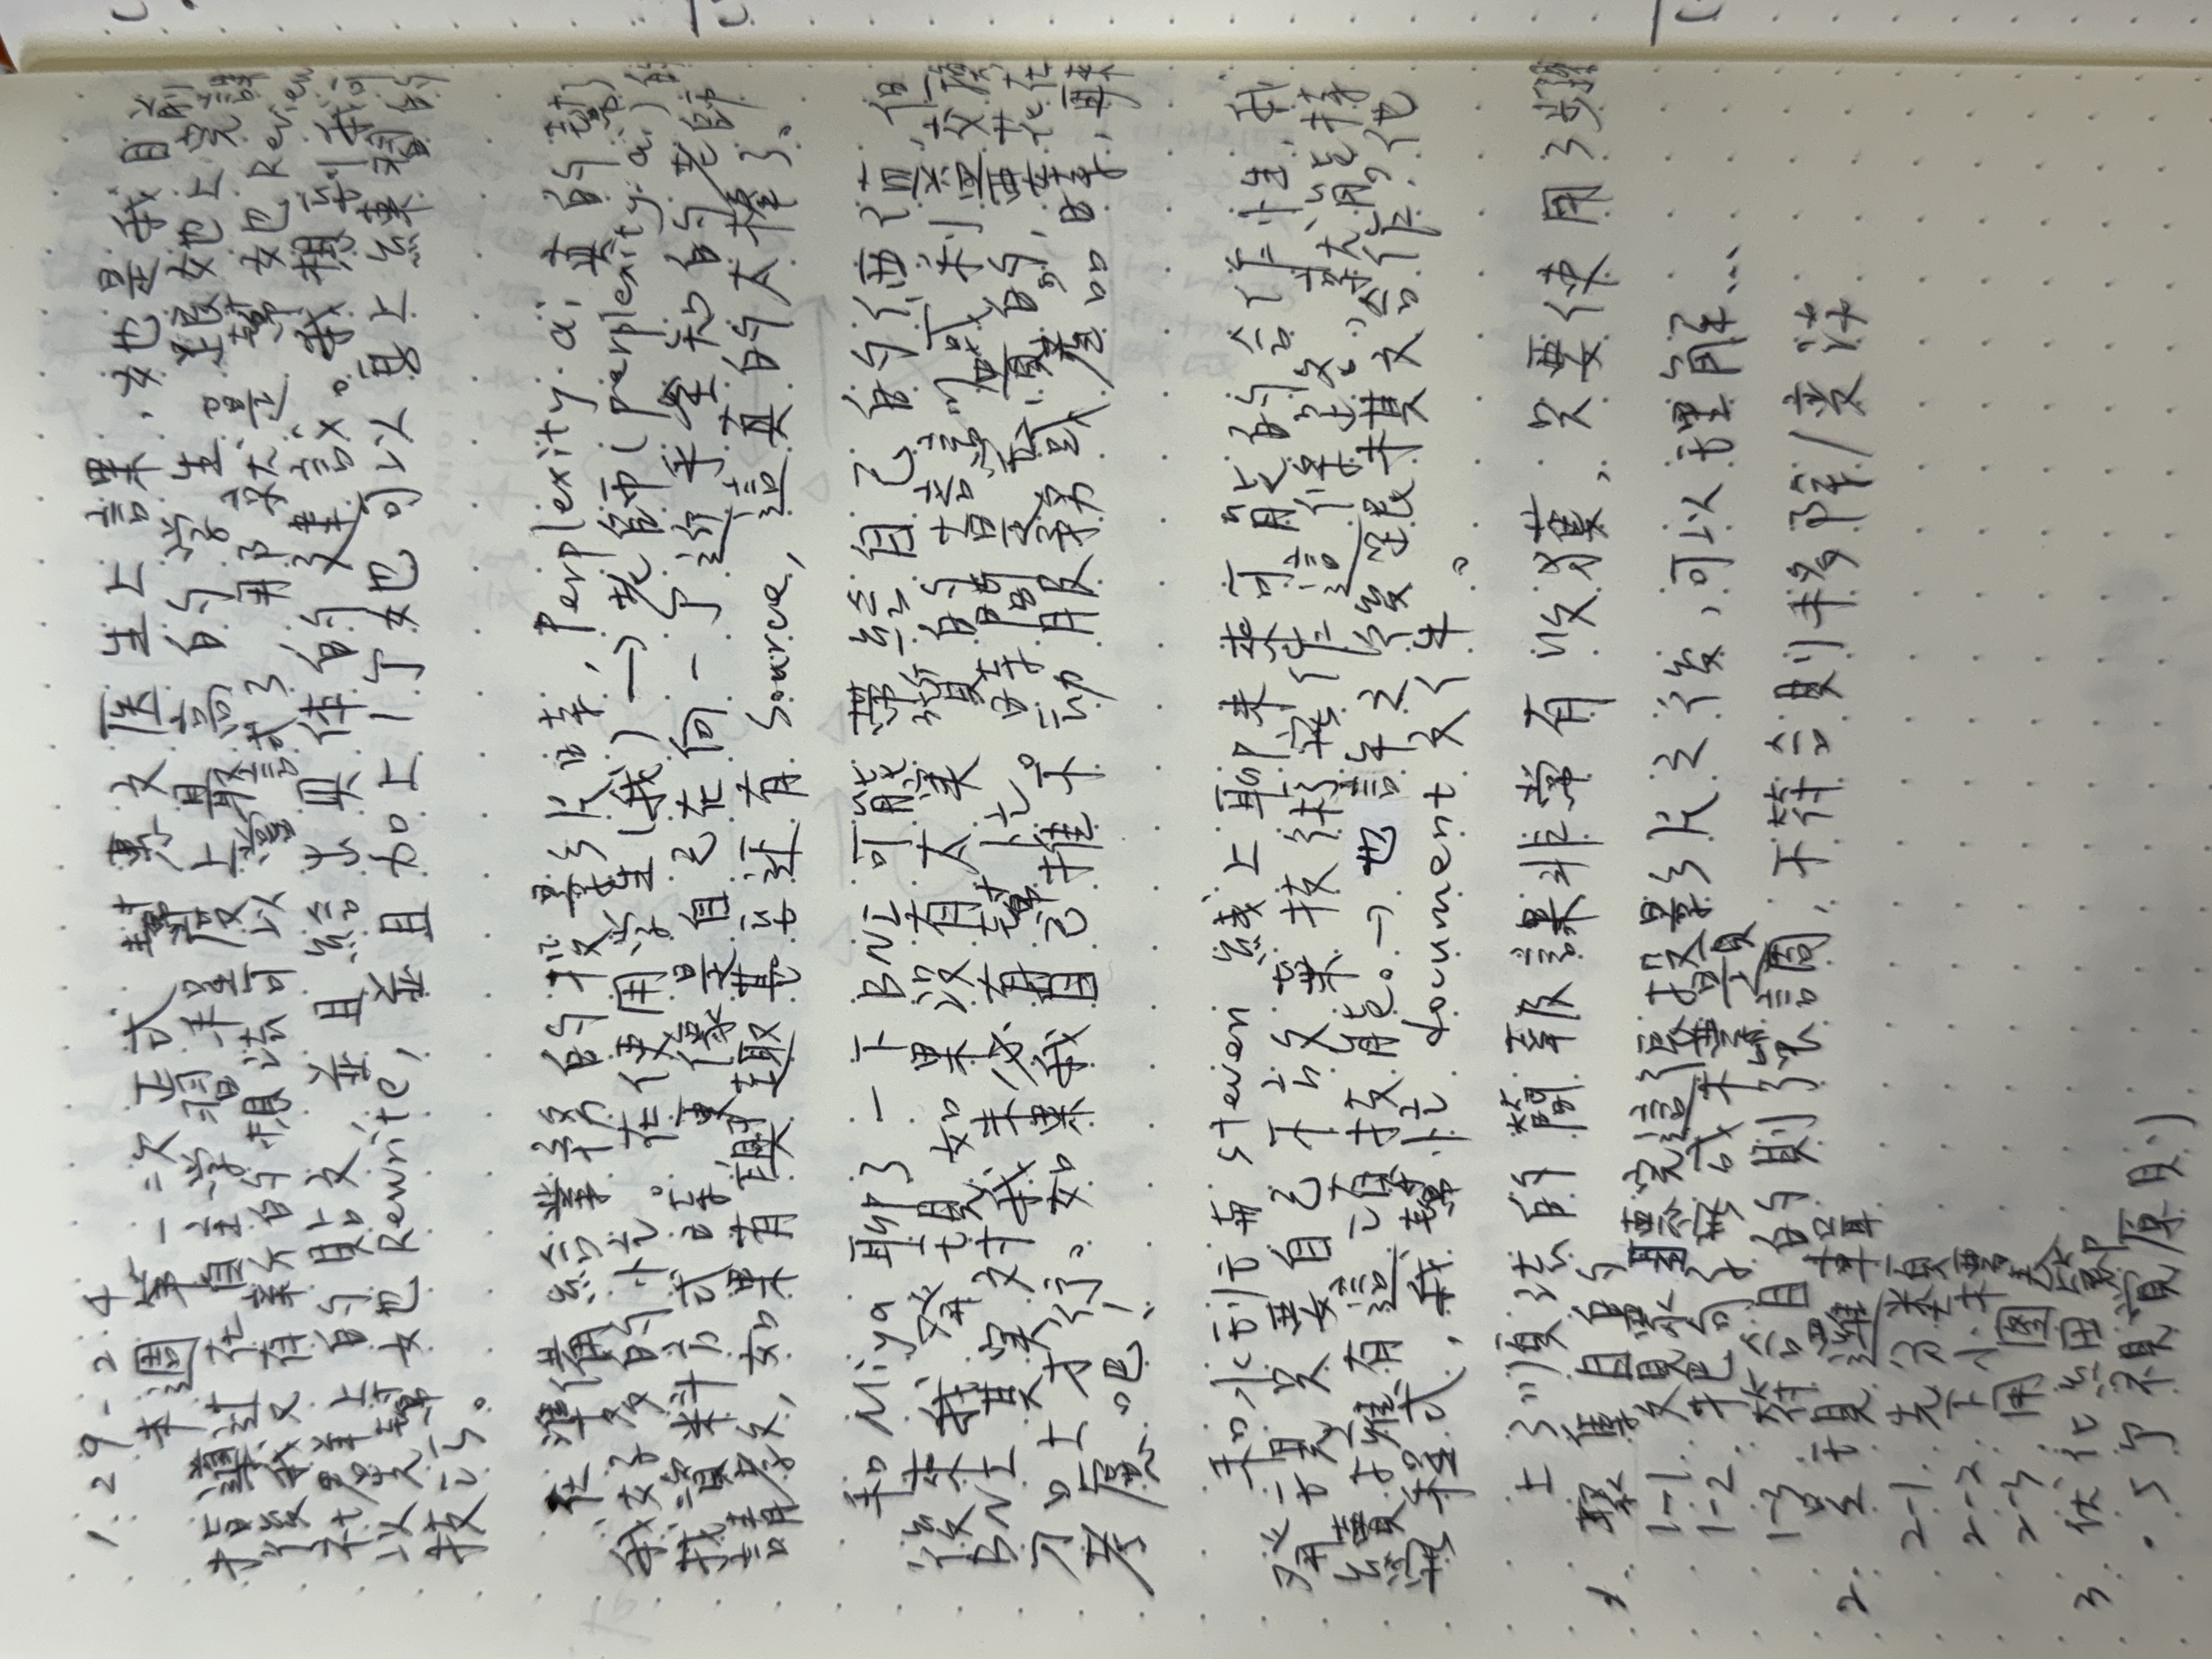 1.29-2.4
本週第一次正式幫惠文医生上課，她是我目前
指導过在自主学習程度上最高的学生。跟她上完課
後我又有新的想法可以嘗試了，那就是幫她Review
社群上的貼文，並且給出具体的建議。我想到我可
以先幫她Rewrite，並且加上1个她可以馬上練習的
技巧。
在準備給業務的投影片時，Perplexity.ai真的幫了
我好多的忙。在使用学生(我)→老師(perplexity.ai)的
找資料方式時，更像是自己在向一个近乎全知的老師
請教，如果有興趣甚至还有source，這真的太棒了。
和Miya聊了一下BNI可能帶給自己的価值，但
後來我發現如果沒有太実質的 或利益交換
BNI其実対我未必有幫忙。時間是宝貴的，要花在
刀口上才行。如果我自己推不動服務或產品時，再來
考慮吧！
和水到 Steven線上聊未來可能的合作性，我
發現只要自己不放棄技術寫作這條路，就能持
續擁有這項技能。→也許之後跟棋文合作？他
寫程式，我幫忙document文件。
上了順法的簡報課非常有收獲，只要使用3步驟
1. 聚集目的
1-1. 观眾聽完這張投影片之後，可以理解...
1-2. 把句子寫成标題
1-3. 符合目的則強調，不符合則移除/变淡
2. 呈現邏輯
2-1. 先分類
2-2. 下小標
2-3. 用圖表
3. 优化細節
·5个視覚原則